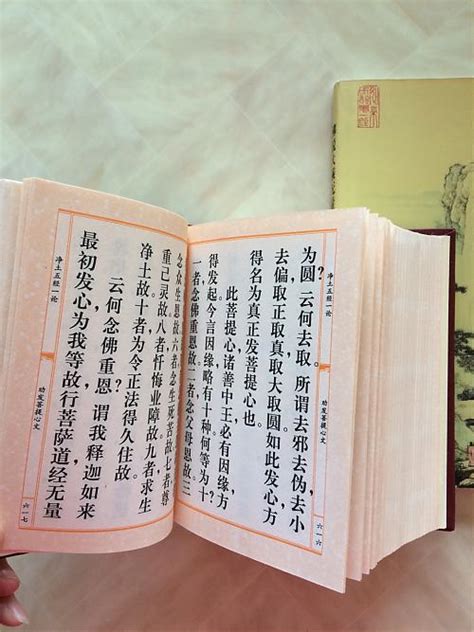 净土五经一论
劝发菩提心文
六一六
为圆?云何去取。所谓去邪、去伪、去小、
去偏,取正、取真、取大、取圆,如此发心,方
得名为真正发菩提心也。
此菩提心,诸善中王,必有因缘,方
得发起,今言因缘,略有十种,何等为十?
一者念佛重恩故,二者念父母恩故,三
念众生恩故,六者念生死苦故,七者尊
重己灵故,八者忏悔业障故,九者求生
净土故,十者为令正法得久住故。
云何念佛重恩?谓我释迦如来
最初发心,为我等故,行菩萨道,经无量
净土五经一论
劝发菩提心文
六一七